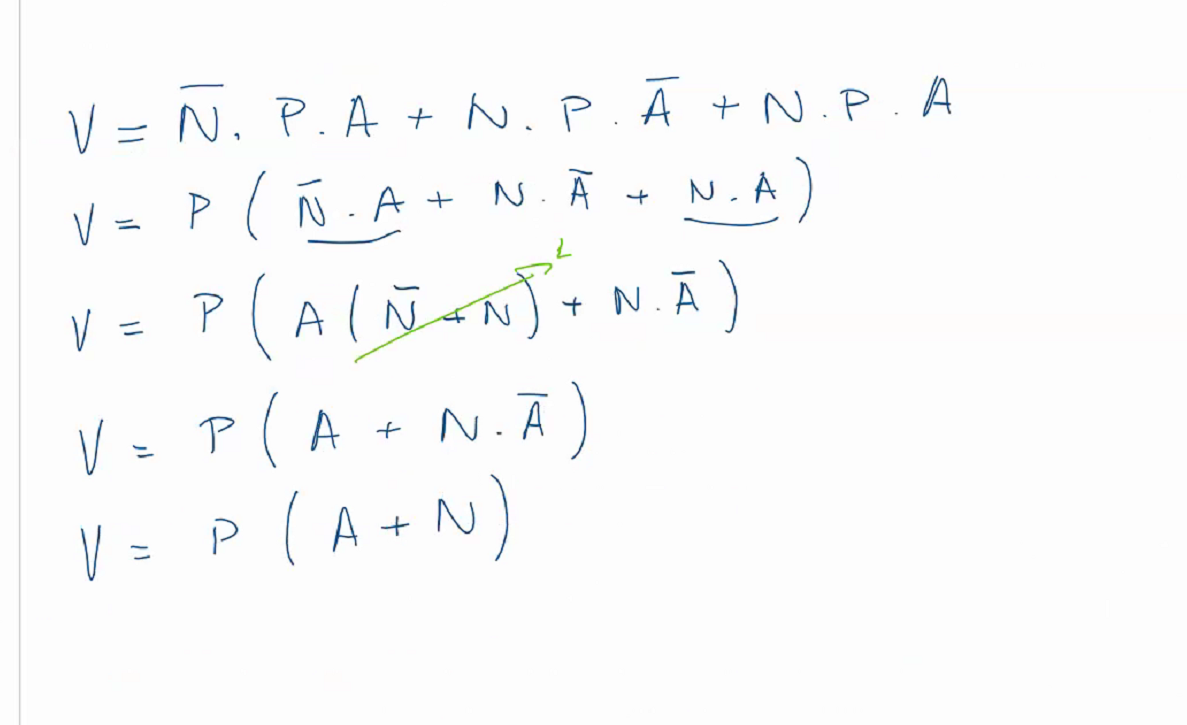 V = N̅. P. A + N. P. A̅ + N. P. A
V = P ( N̅. A + N. A̅ + N. A )
V = P ( A ( N̅ + N ) + N. A̅ )
V = P ( A + N. A̅ )
V = P ( A + N )